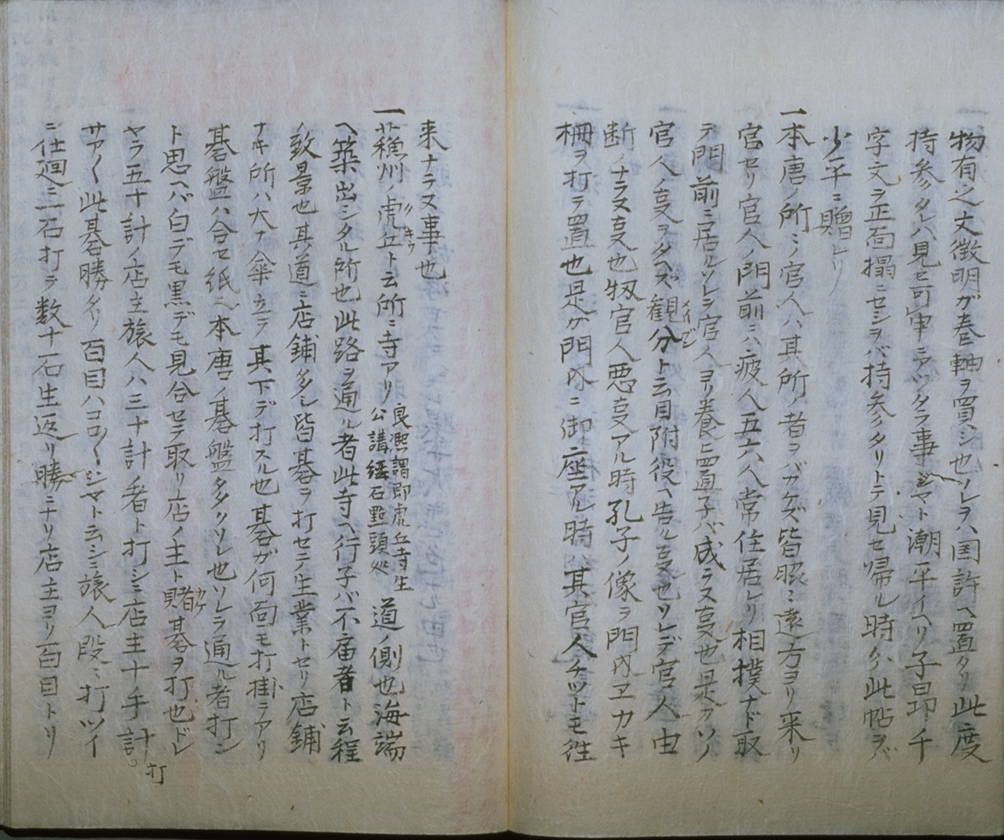 物有之丈徴明ガ巻軸ヲ買シ也ソレヲハ国許ヘ置タリ此度
持参ノタレハ見セ可申ニテツタラ事シマト潮平イヘリ子昂千
字文ヲ正面搨ニセシヲバ持参ノタリトテ見セ帰ル時ケ此帖ヲバ
少平ニ贈レリ
一本唐ノ所ミノ官人ハ其所ノ者ヲバカケズ皆眼ニ遠方ヨリ来リ
官セリ官人ノ門前ニハ疲人五六人常住居レリ相撲ナド取
テ門前ニ居ルソレヲ官人ヨリ養ヒ置子バ成ラヌ事也是ガソノ
官人ノ事ヲタズ観分ト云目附役ヘ告ル事也ソレデ官人由
断ノナラヌ事也扨官人悪事アル時孔子ノ像ヲ門内エカキ
柵ヲ打テ置也是ガ門内ニ御座アル時ハ其官人チツトモ往
来ナラヌ事也
一蘓州ノ虎丘ト云所ニ寺アリ 良熈謂即虎丘寺生公講経石點頭処 道ノ側也海端
ヘ築出シタル所也此路ヲ通ル者此寺ヘ行子バ不届者ト云程
ノ致景也其道ニ店鋪多シ皆碁ヲ打セテ生業トセリ店鋪
ナキ所ハ大ナ傘立テ其下デ打スル也碁ガ何面モ打掛テアリ
碁盤ハ合セ紙ヘ本唐ノ碁盤タタクソレ也ソレヲ通ル者打ン
ト思ヘバ白デモ黒デモ見合セテ取リ店ノ主ト賭碁ヲ打也ドレ
ヤラ五十計ノ店主旅人ハ三十計ノ者ト打シニ店主十手計打
サアく此碁勝タリ百目ハココくシマト云シニ旅人段々打ツイ
ニ仕廻ニ一石打テ数十石生返リ勝ニナリ店主ヨリ百目トリ